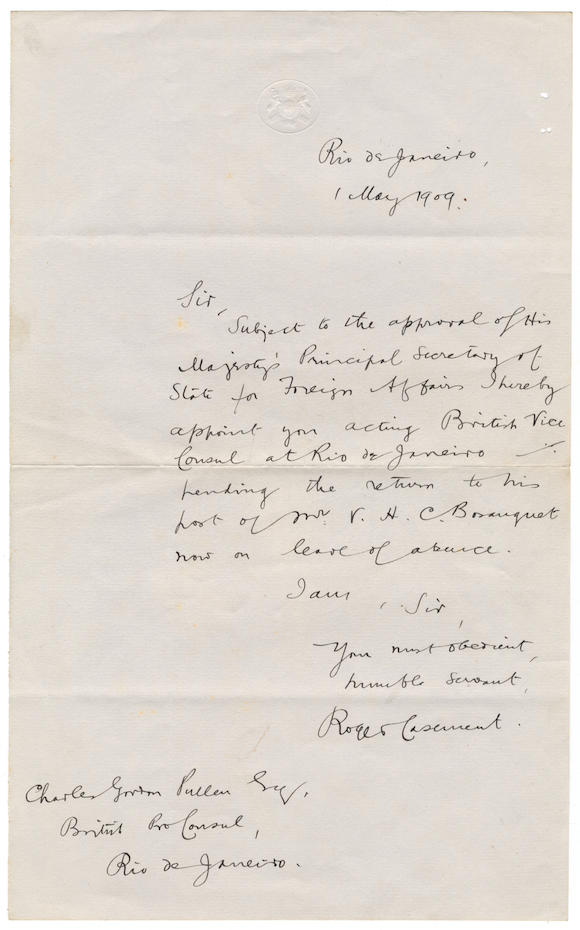 Rio de Janeiro,
1 May 1909.
Sir,
Subject to the approval of His
Majesty's Principal Secretary of
State for Foreign Affairs I hereby
appoint you acting British Vice
Consul at Rio de Janeiro
pending the return to his
post of Mr. V. H. C. Bosanquet
now on leave of absence.
I am, Sir,
Your most obedient,
humble servant,
Roger Casement.
Charles Gordon Pullen Esq.,
British Pro Consul,
Rio de Janeiro.